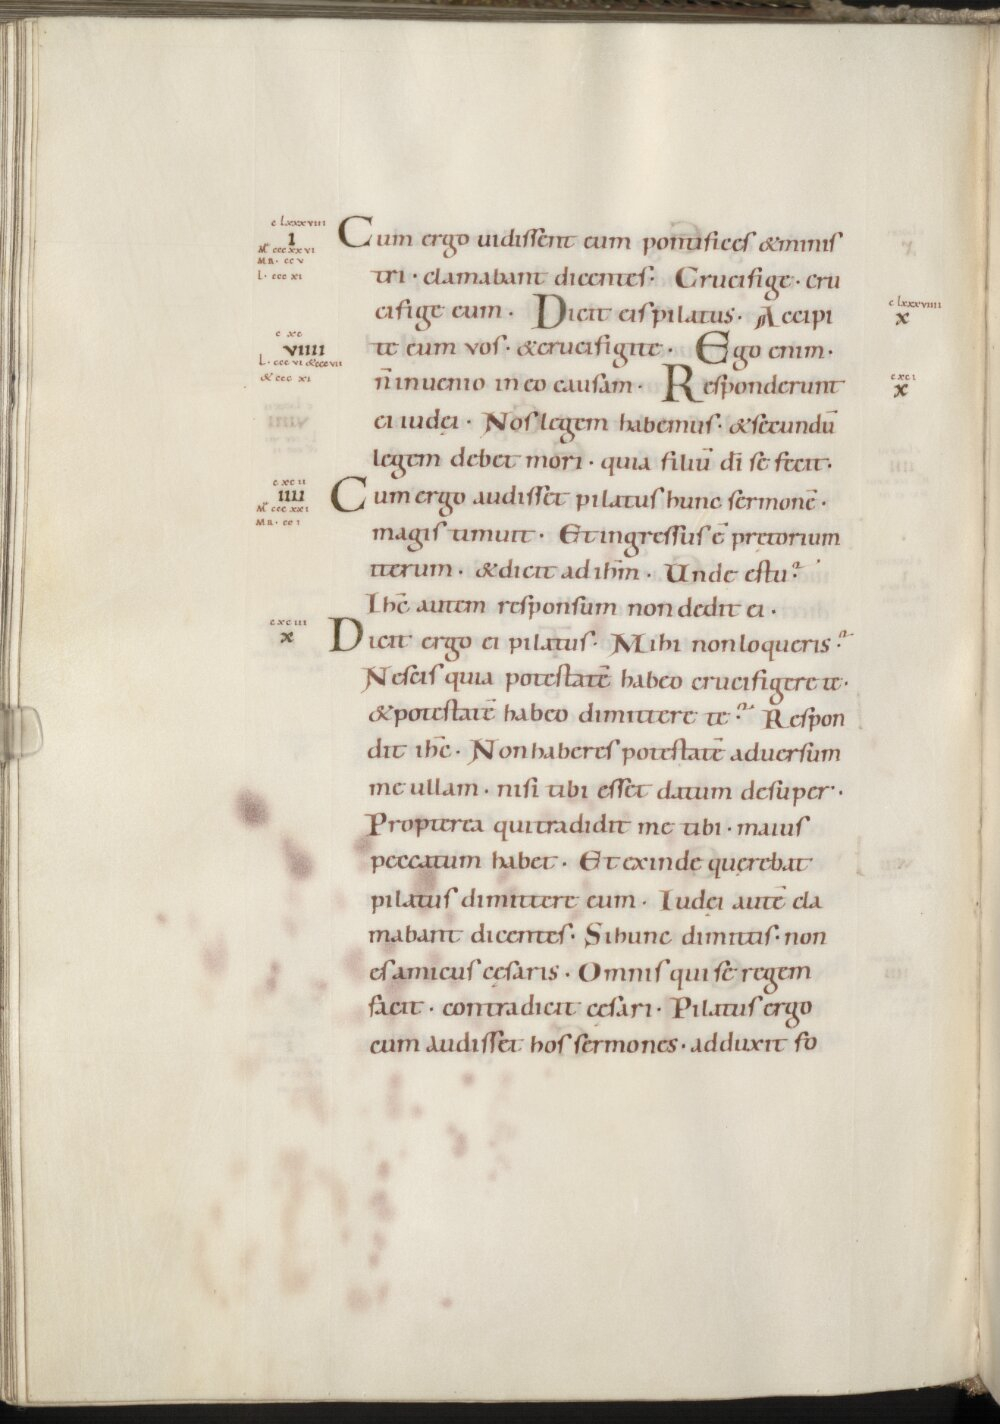 c lxxxviiii
I
Mt ccc xxvi
MR · cc v
L · ccc xi
Cum ergo uidissent eum pontifices & minis
tri · clamabant dicentes · Crucifige · cru
cifige eum · Dicit eis pilatus · Accipi
c lxxxviiii
x
c xc
viiii
L · ccc vi & ccc vii
& ccc xi
te eum vos · & crucifigite · Ego enim ·
n̄ inuenio in eo causam · Responderunt
c xci
x
ei iudei · Nos legem habemus · & secundū
legem debet mori · quia filiū dī se fecit ·
c xc ii
IIII
Mt ccc xxi
MR · cc i
Cum ergo audisset pilatus hunc sermonē ·
magis timuit · Et ingressus ē pretorium
iterum · & dicit ad ihm̄ · Unde es tu?
Ihc̄ autem responsum non dedit ei ·
c xc iii
x
Dicit ergo ei pilatus · Mihi non loqueris?
Nescis quia potestatē habeo crucifigere te ·
& potestatē habeo dimittere te? Respon
dit ihc̄ · Non haberes potestatē aduersum
me ullam · nisi tibi esset datum desuper ·
Propterea qui tradidit me tibi · maius
peccatum habet · Et exinde querebat
pilatus dimittere eum · Iudei autē cla
mabant dicentes · Si hunc dimittis · non
es amicus cęsaris · Omnis qui se regem
facit · contradicit cęsari · Pilatus ergo
cum audisset hos sermones · adduxit fo